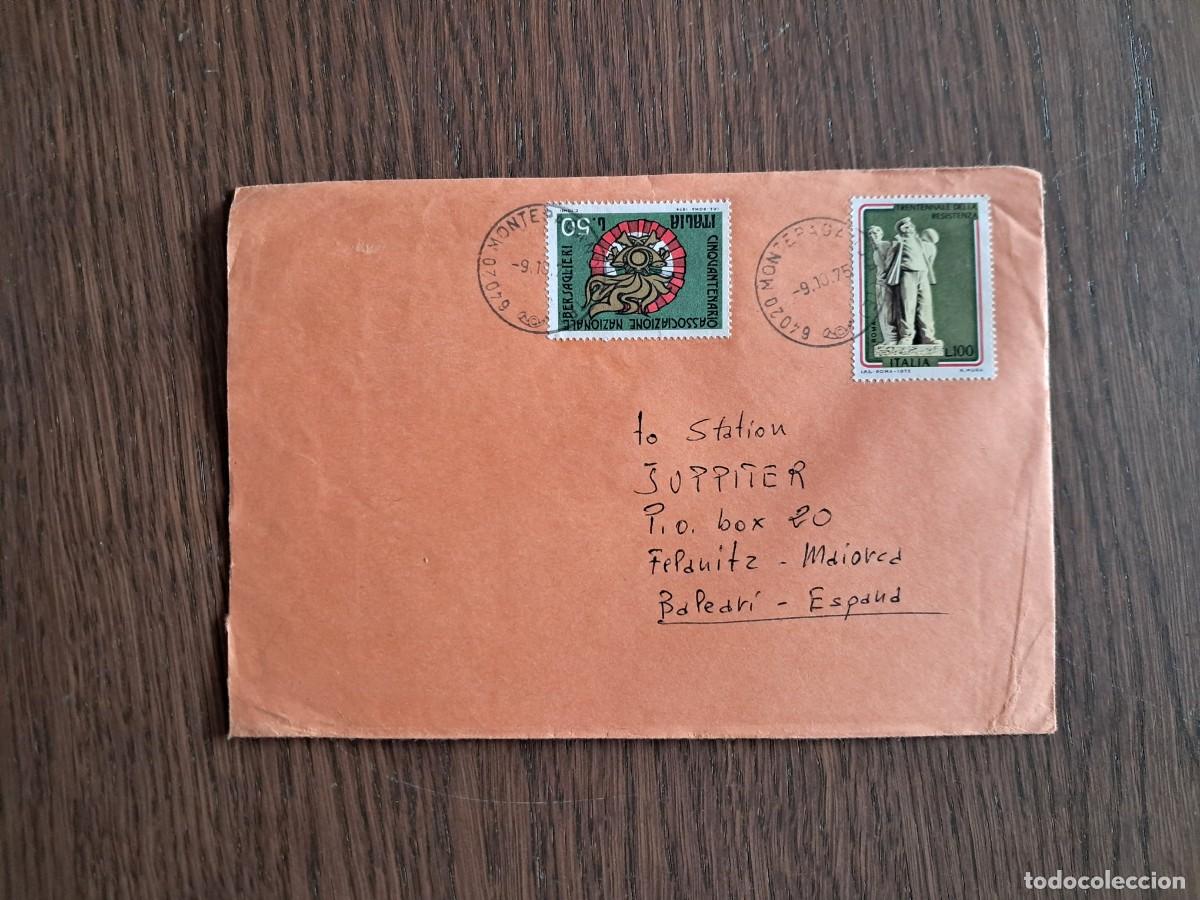 64020 MONTEPAGA
-9.10.75
I.P.S.-ROMA-1974
ITALIA
L.50
CINQUANTENARIO
ASSOCIAZIONE NAZIONALE
BERSAGLIERI
64020 MONTEPAGA
-9.10.75
TRENTENNALE DELLA
RESISTENZA
ROMA
L.100
ITALIA
I.P.S.-ROMA-1975
to Station
JUPPITER
P.o. box 20
Felanitz - Maiorca
Baleari - Espana
todocoleccion